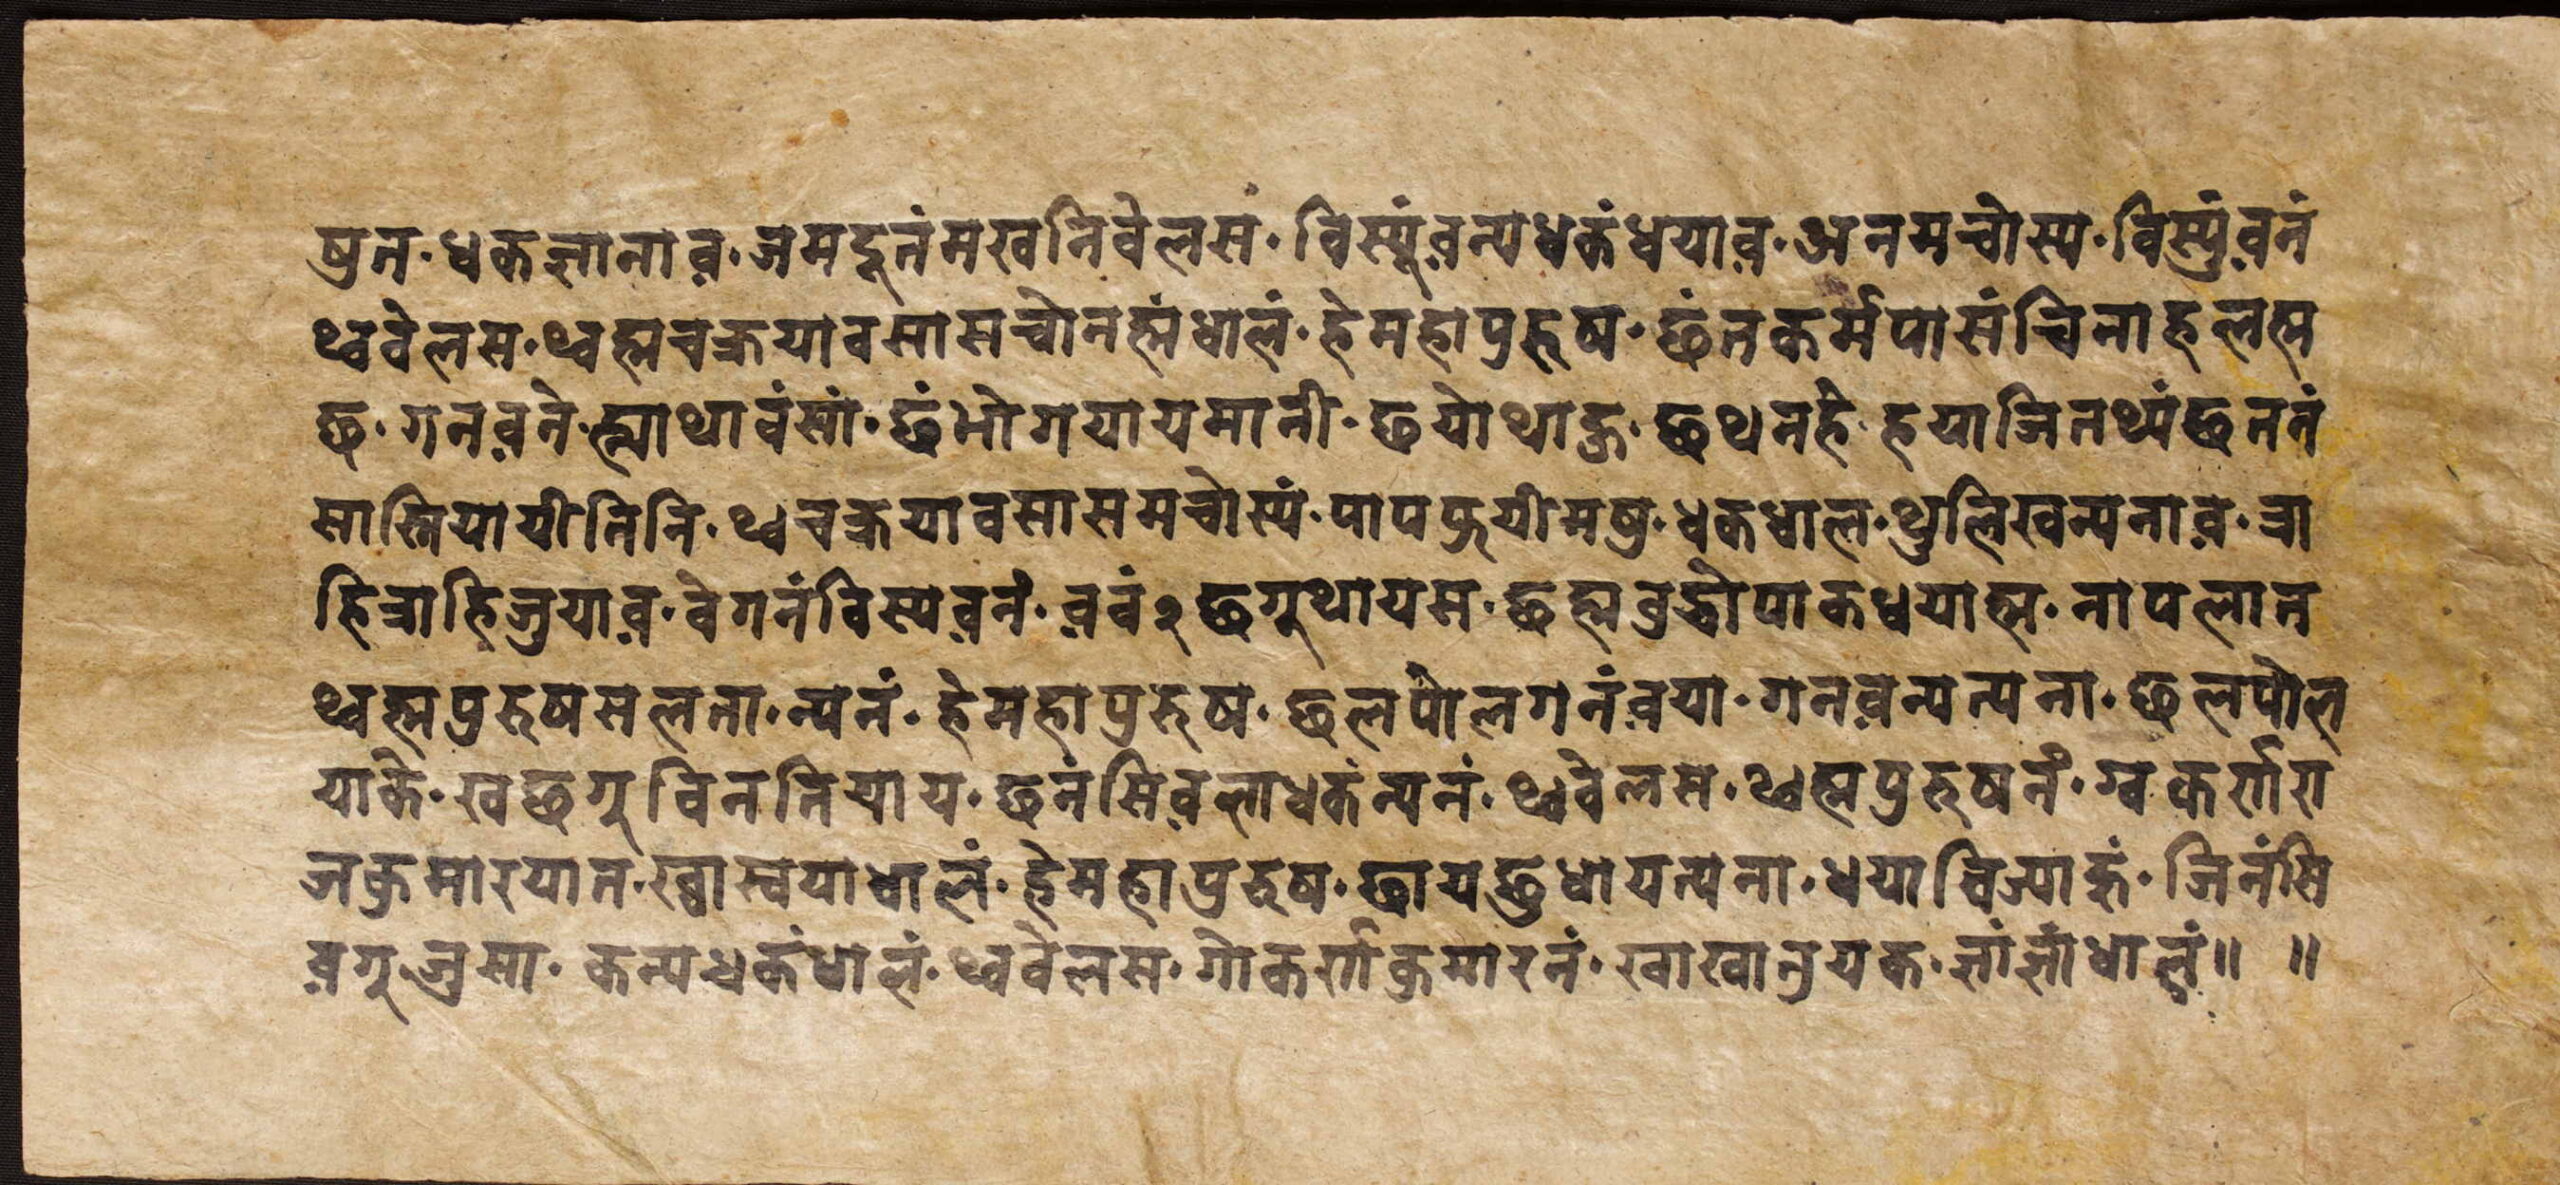 षुन · धकज्ञानाव़ · जमदूनंमखनिवेलस · विस्यूंव़न्यधकंधयाव़ · अनमचोस्य · विस्युंव़नं
थ्ववेलस · थ्वह्मचक्रयावसासचोनह्मंधालं · हेमहापुरुष · छंतकर्मपासंचिनाहलह्म
छ · गनव़ने · ह्माथावंसां · छंभोगयायमानी · छयोथाकु · छथनहे · हयाजिनथ्यंछनतं
सास्तियायीतिनि · थ्वचक्रयावसासमचोस्यं · पापफुयीमषु · धकधाल · थुलिखन्यनाव़ · त्रा
हित्राहिजुयाव़ · वेगनंविस्यव़नं · व़वं२छगूथायस · छह्मवुद्धोपाकधयाह्म · नापलात
थ्वह्मपुरुषसलता · न्यनं · हेमहापुरुष · छलपोलगनंव़या · गनव़न्यत्यना · छलपोल
याके · खछगूविनतियाय · छनंसिव़लाधकंन्यनं · थ्ववेलस · थ्वह्मपुरुषनं · ग्वकर्णरा
जकुमारयात · ख्वास्वयाधालं · हेमहापुरुष · छायछुधायत्यना · धयाविज्याहुं · जिनंसि
व़गूजुसा · कन्यधकंधालं · थ्ववेलस · गोकर्णकुमारनं · खाखाजुयक · ज्ञांज्ञांधालं॥ ॥